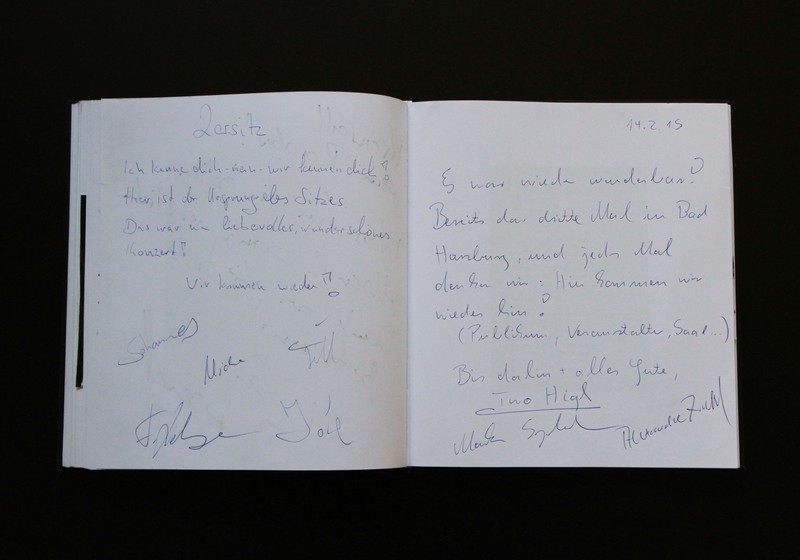 2ersitz
Ich kenne dich - nein - wir kennen dich!
Hier ist der Ursprung des Sitzes
Das war ein liebevolles, wunderschönes
Konzert!
Wir kommen wieder!!
Johannes
Micha Till
Jörg
14.2.15
Es war wieder wunderbar!
Bereits das dritte Mal in Bad
Homburg, und jedes Mal
denken wir: Hier kommen wir
wieder hin!
(Publikum, Veranstalter, Saal...)
Bis dahin + alles Gute,
Two High